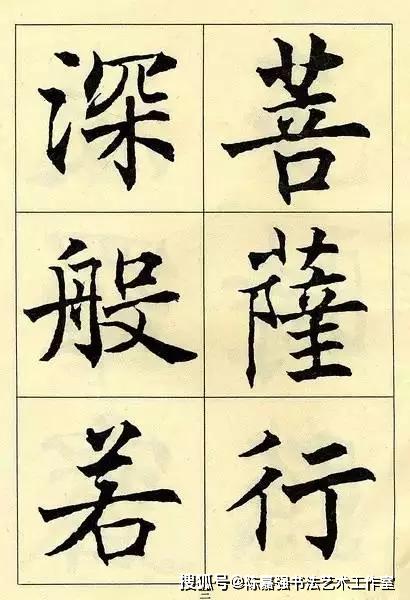 菩薩行
深般若
搜狐号@陈嘉强书法艺术工作室
二